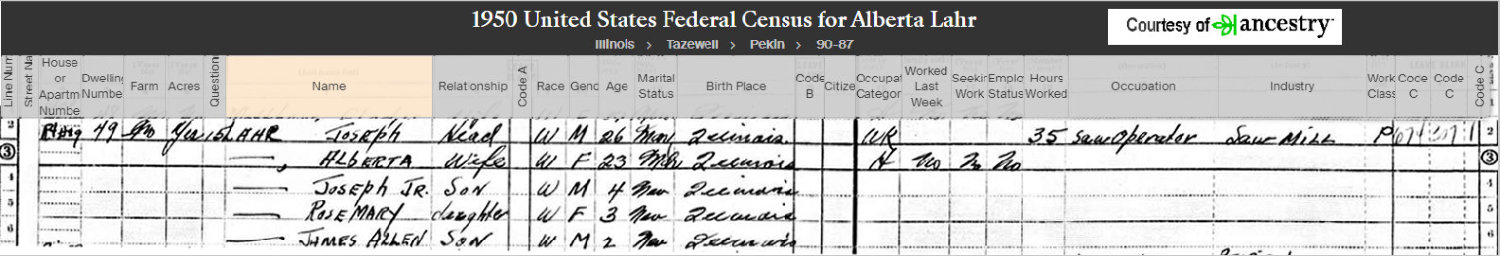 1950 United States Federal Census for Alberta Lahr
Courtesy of ancestry
Illinois > Tazewell > Pekin > 90-87
Line Num Street Na House or Apartm Numbe Dwelling Numbe Farm Acres Question Name Relationship Code A Race Gend Age Marital Status Birth Place Code B Citize Occupat Categor Worked Last Week Seekin Work Emplo Status Hours Worked Occupation Industry Work Class Code C Code C Code C
2 49 No Yes LAHR Joseph Head W M 26 Mar Illinois WR 35 Saw Operator Saw Mill P 2
3 —, ALBERTA Wife W F 23 Mar Illinois H No No No 3
4 — Joseph JR. Son W M 4 Nev Illinois 4
5 — ROSEMARY daughter W F 3 Nev Illinois 5
6 — JAMES ALLEN Son W M 2 Nev Illinois 6